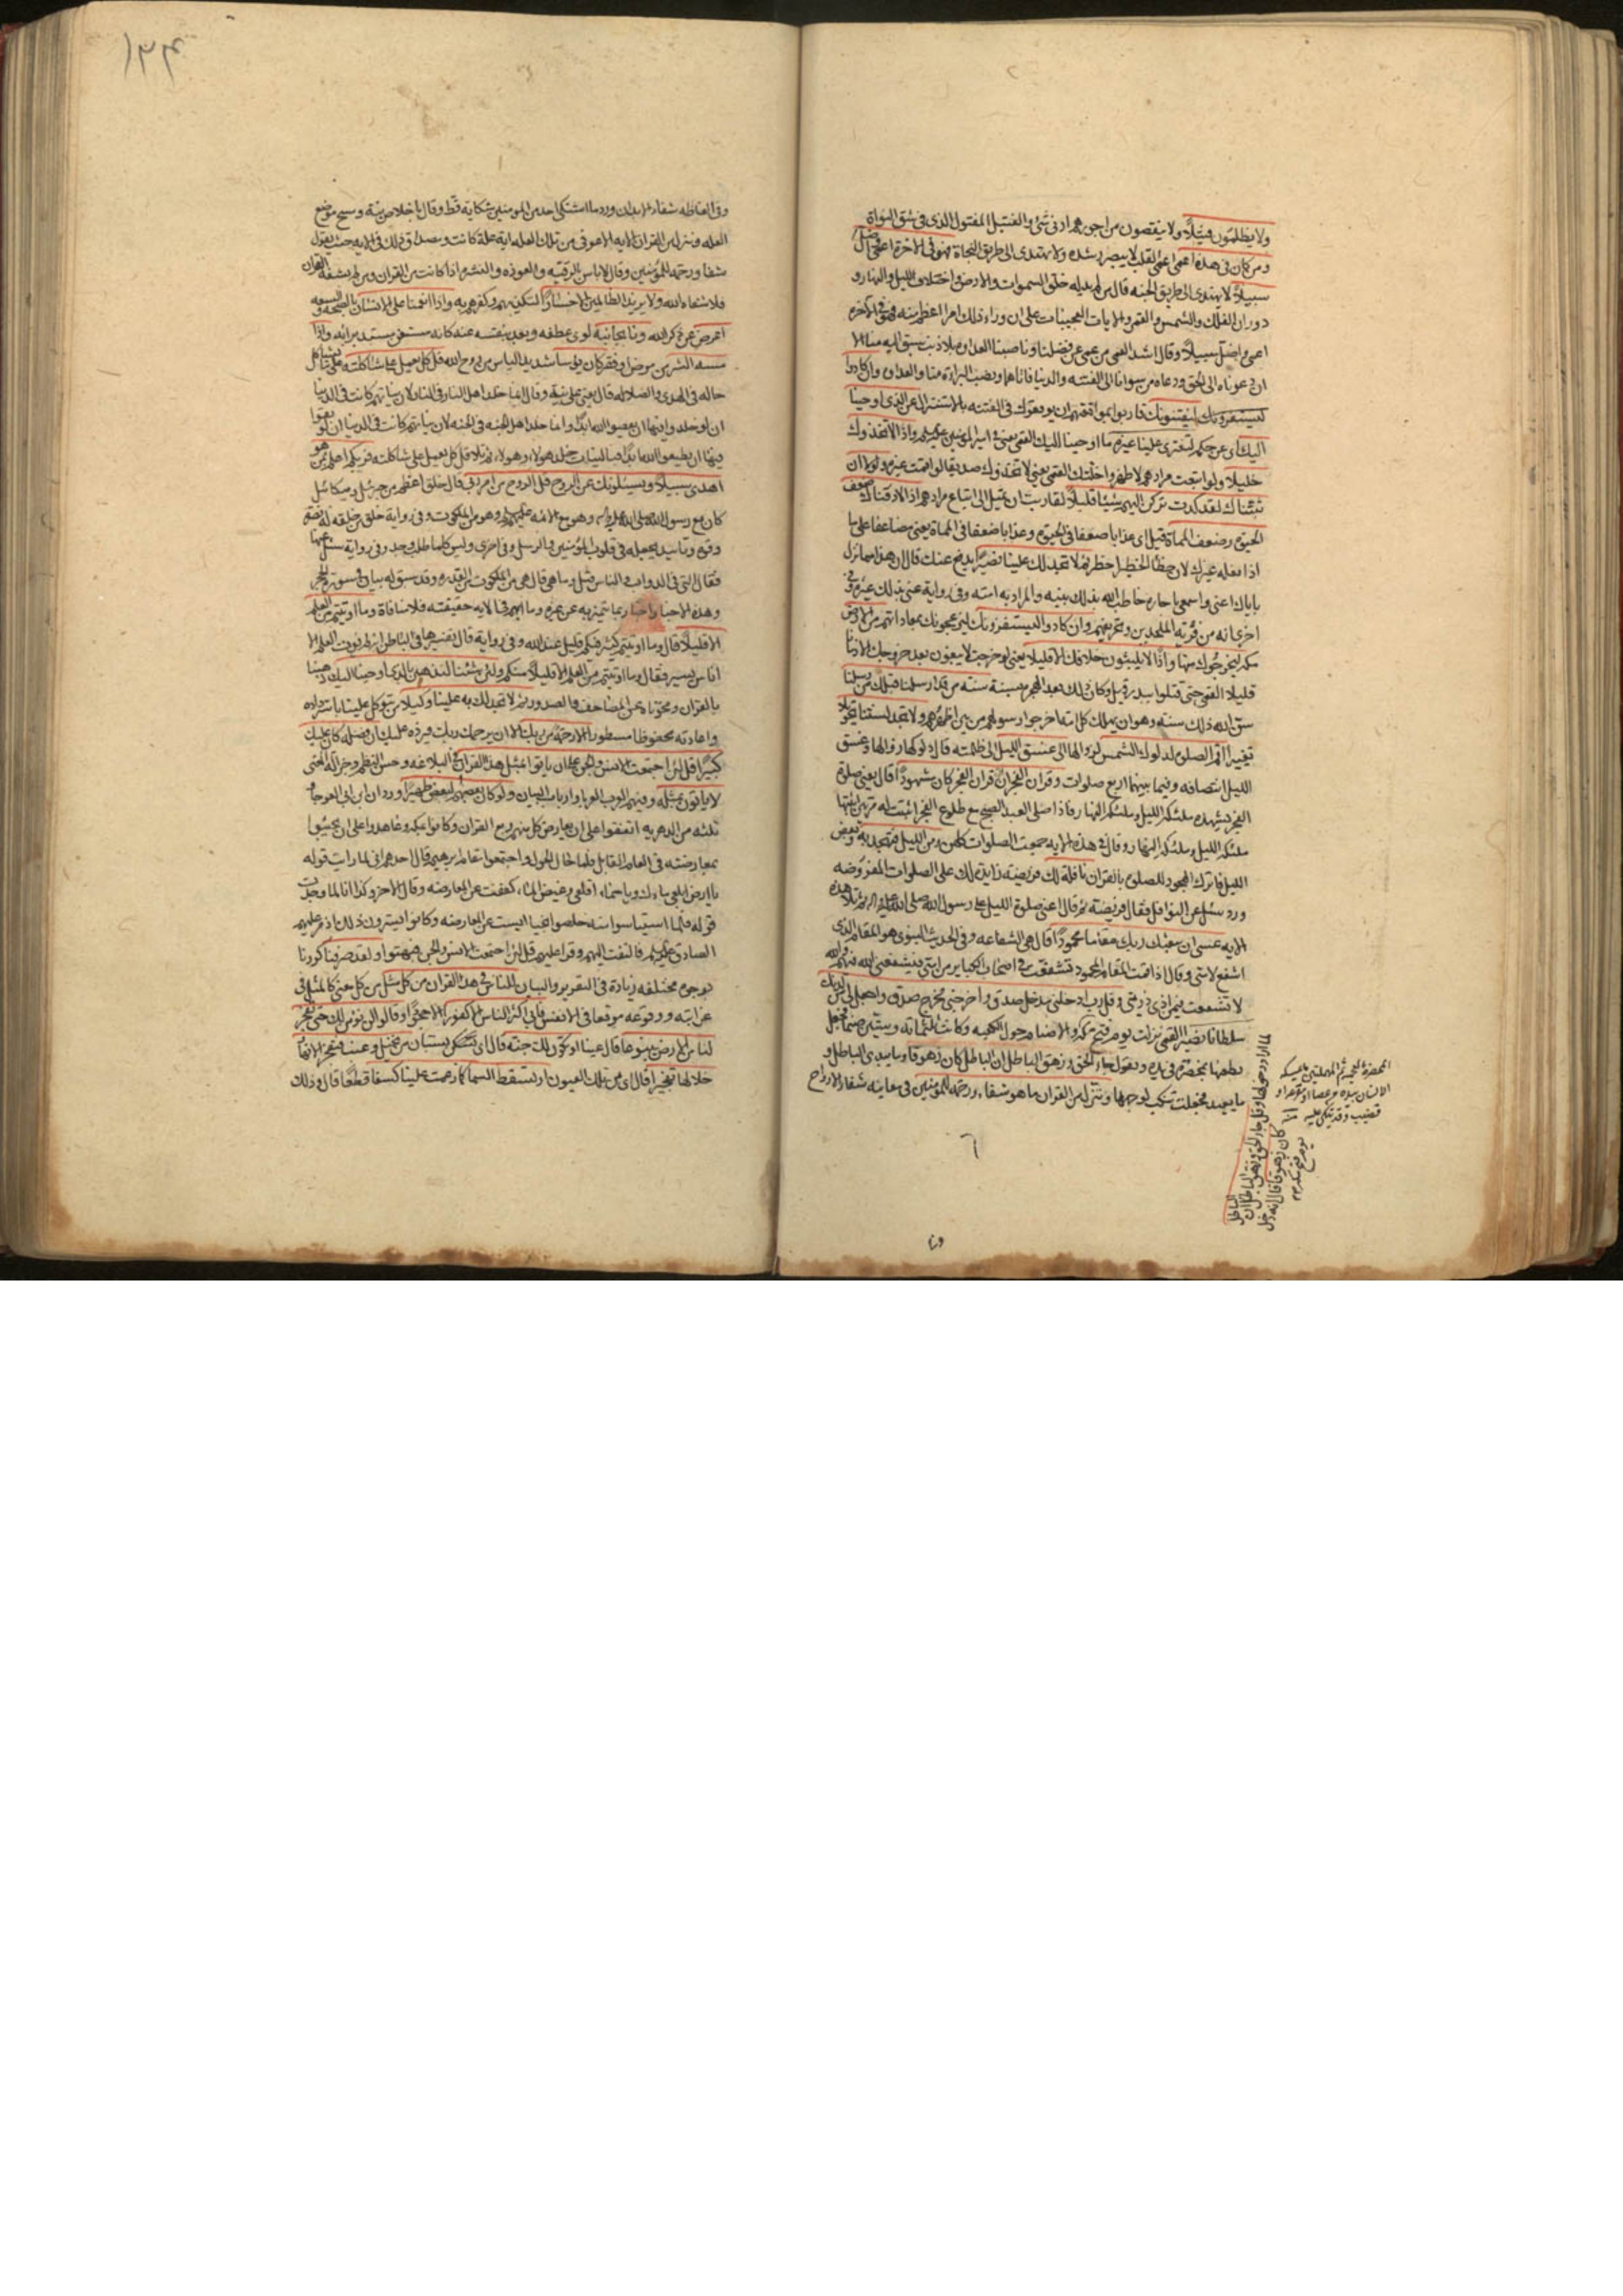 ولا يظلمون فتيلا ولا ينقصون من اجورهم ادنى شئ والفتيل المفتول الذى فى شق النواة
ومن كان فى هذه اعمى اعمى القلب لا يبصر رشده ولا يهتدى الى طريق النجاة فهو فى الاخرة اعمى واضل
سبيلا لا يهتدى الى طريق الجنه قال من لم يدله خلق السموات والارض واختلاف الليل والنهار و
دوران الفلك والشمس والقمر والايات العجيبات على ان وراء ذلك امرا اعظم منه فهو فى الاخرة
اعمى واضل سبيلا وقال اشد العمى من عمى عن فضلنا وناصبنا العداوة بلا ذنب سبق اليه منا الا
ان دعوناه الى الحق ودعاه من سوانا الى الفتنه والدنيا فاتاهما ونصب البراءة منا والعداوة وان كادوا
ليستفزونك ليفتنونك قاربوا بموافقتهم ان يوقعوك فى الفتنه بالاستنزال عن الذى اوحينا
اليك اى عن حكم لتفترى علينا غيره ما اوحينا اليك القمى يعنى فى امير المؤمنين واذا لاتخذوك
خليلا ولو اتبعت مرادهم لاظهروا خلتك القمى يعنى لاتخذوك صديقا لو اقمت غيره ولولا ان
ثبتناك لقد كدت تركن اليهم شيئا قليلا لقاربت ان تميل الى اتباع مرادهم اذا لاذقناك ضعف
الحيوة وضعف المماة قيل اى عذابا ضعفا فى الحيوة وعذابا ضعفا فى المماة يعنى مضاعفا على ما
اذا فعله غيرك لان خطأ الخطير اخطر ثم لا تجد لك علينا نصيرا يدفع عنك قال ان هذا مما نزل
باياك اعنى واسمعى يا جاره خاطب الله بذلك نبيه والمراد به امته وفى رواية عنى بذلك غيره وفى
اخرى انه من فرية الملحدين وتحريفهم وان كادوا ليستفزونك ليزعجونك بمعاداتهم من الارض
مكه ليخرجوك منها واذا لا يلبثون خلافك الا قليلا يعنى لو خرجت لا يبقون بعد خروجك الا زمانا
قليلا القمى حتى قتلوا ببدر وقيل وكان ذلك بعد الهجرة بسنة سنة من قد ارسلنا قبلك من رسلنا
سن الله ذلك سنة وهو ان يهلك كل امة اخرجوا رسولهم من بين اظهرهم ولا تجد لسنتنا تحويلا
تغييرا اقم الصلوة لدلوك الشمس لزوالها الى غسق الليل الى ظلمته قال دلوكها زوالها وغسق
الليل انتصافه وفيما بينهما اربع صلوات وقران الفجر ان قران الفجر كان مشهودا قال يعنى صلوة
الفجر تشهده ملئكة الليل وملئكة النهار فاذا صلى العبد الصبح مع طلوع الفجر اثبت له مرتين اثبتها
ملئكة الليل وملئكة النهار وقال فى هذه الاية جمعت الصلوات كلهن ومن الليل فتهجد به وبعض
الليل فاترك الهجود للصلوة بالقران نافلة لك فريضة زايدة لك على الصلوات المفروضه
ورد سئل عن النوافل فقال فريضة ثم قال اعنى صلوة الليل على رسول الله صلى الله عليه واله ثم تلا هذه
الايه عسى ان يبعثك ربك مقاما محمودا قال هى الشفاعه وفى الحديث النبوى هو المقام الذى
اشفع لامتى وقال اذا قمت المقام المحمود تشفعت فى اصحاب الكباير من امتى فيشفعنى الله فيهم والله
لا تشفعت فيمن اذى ذريتى وقل رب ادخلنى مدخل صدق واخرجنى مخرج صدق واجعل لى من لدنك
سلطانا نصيرا القمى نزلت يوم فتح مكه والاصنام حول الكعبه وكانت ثلثمائة وستين صنما فجعل
يطعنها بمخصرة فى يده ويقول جاء الحق وزهق الباطل ان الباطل كان زهوقا وما يبدئ الباطل و
ما يعيد فجعلت تنكب لوجهها وننزل من القران ما هو شفاء ورحمة للمؤمنين فى معانيه شفاء الارواح
لما اراد دخولها وقل جاء الحق وزهق الباطل ان الباطل
كان زهوقا قال انه دخل
يوم فتح مكه
المخصرة بالمعجمة ثم المهملتين ما يمسكه
الانسان بيده من عصا او مقرعة او
قضيب وقد يتكى عليه منه
٦
وفى
١٣٣
وفى الفاظه شفاء الابدان ورد ما اشتكى احد من المومنين شكاية قط وقال باخلاص نية ومسح موضع
العله وننزل من القران الايه الا عوفى من تلك العله اية علة كانت ومصداق ذلك فى الايه حيث يقول
شفاء ورحمة للمؤمنين وقال لا باس بالرقيه والعوذه والنشره اذا كانت من القران ومن لم يشفه القران
فلا شفاه الله ولا يزيد الظالمين الا خسارا لتكذيبهم وكفرهم به واذا انعمنا على الانسان بالصحة والسعه
اعرض عن ذكر الله ونا بجانبه لوى عطفه وبعد بنفسه عنه كانه مستغن مستبد برايه واذا
مسه الشر من مرض او فقر كان يؤسا شديد الياس من روح الله قل كل يعمل على شاكلته على ما تشاكل
حاله فى الهدى والضلاله قال يعنى على نيته وقال انما خلد اهل النار فى النار لان نياتهم كانت فى الدنيا
ان لو خلدوا فيها ان يعصوا الله ابدا وانما خلد اهل الجنه فى الجنه لان نياتهم كانت فى الدنيا ان لو بقوا
فيها ان يطيعوا الله ابدا فبالنيات خلد هولاء وهولاء ثم تلا قل كل يعمل على شاكلته فربكم اعلم بمن هو
اهدى سبيلا ويسئلونك عن الروح قل الروح من امر ربى قال خلق اعظم من جبرئيل وميكائيل
كان مع رسول الله صلى الله عليه واله وهو مع الائمه عليهم السلم وهو من الملكوت وفى رواية خلق من خلقه له بصر
وقوة وتاييد يجعله فى قلوب المؤمنين والرسل وفى اخرى وليس كلما طلب وجد وفى رواية سئل عنها
فقال التى فى الدواب والناس قيل وما هى قال هى من الملكوت من القدره وقد سبق له بيان فى سورة الحجر
وهذه الاخبار اخبار بما تتميز به عن غيره وما ابهم فى الايه حقيقته فلا منافاة وما اوتيتم من العلم
الا قليلا قال وما اوتيتم كثير فيكم قليل عند الله وفى رواية قال تفسيرها فى الباطن انه لم يؤت العلم الا
اناس يسير فقال وما اوتيتم من العلم الا قليلا منكم ولئن شئنا لنذهبن بالذى اوحينا اليك ذهبنا
بالقران ومحوناه عن المصاحف والصدور ثم لا تجد لك به علينا وكيلا من يتوكل علينا باسترداده
واعادته محفوظا مسطورا الا رحمة من ربك الا ان يرحمك ربك فيرده عليك ان فضله كان عليك
كبيرا قل لئن اجتمعت الانس والجن على ان ياتوا بمثل هذا القران فى البلاغه وحسن النظم وجزالة المعنى
لا ياتون بمثله وفيهم العرب العربا وارباب البيان ولو كان بعضهم لبعض ظهيرا ورد ان ابن ابى العوجاء و
ثلثه من الدهريه اتفقوا على ان يعارض كل منهم ربع القران وكانوا بمكه وعاهدوا على ان يجيئوا
بمعارضته فى العام القابل فلما حال الحول واجتمعوا بمقام ابرهيم قال احدهم انى لما رايت قوله
يا ارض ابلعى ماءك ويا سماء اقلعى وغيض الماء كففت عن المعارضه وقال الاخر وكذا انا لما وجدت
قوله فلما استيئاسوا منه خلصوا نجيا ايست عن المعارضه وكانوا يسترون ذلك اذ مر عليهم
الصادق فالتفت اليهم وقرا عليهم قل لئن اجتمعت الانس والجن فبهتوا ولقد صرفنا كررنا
بوجوه مختلفه زيادة فى التقرير والبيان للناس فى هذا القران من كل مثل من كل معنى كالمثل فى
غرابته ووقوعه موقعا فى الانفس فابى اكثر الناس الا كفورا الا جحودا وقالوا لن نؤمن لك حتى تفجر
لنا من الارض ينبوعا قال عينا او تكون لك جنة قال اى بستان من نخيل وعنب فتفجر الانهار
خلالها تفجيرا قال اى من تلك العيون او تسقط السما كما زعمت علينا كسفا قطعا قال وذلك